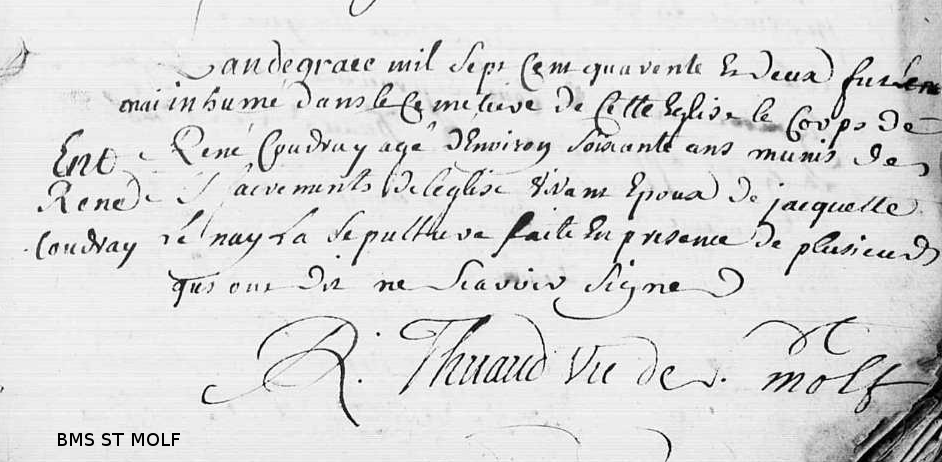 Landegrace mil sept Cent quarente Et deux fut
mai inhumé dans le Cemetiere de Cette Eglise le Corps de
René Coudray agé dEnviron soisante ans munis des
Ent de
René
Coudray
Sacrements de leglise vivant Epoux de jacquette
Le nay La sepulture faite En presence de plusieurs
qui ont dit ne scavoir signer
R. Thuaud Vic de St
molf
BMS ST MOLF